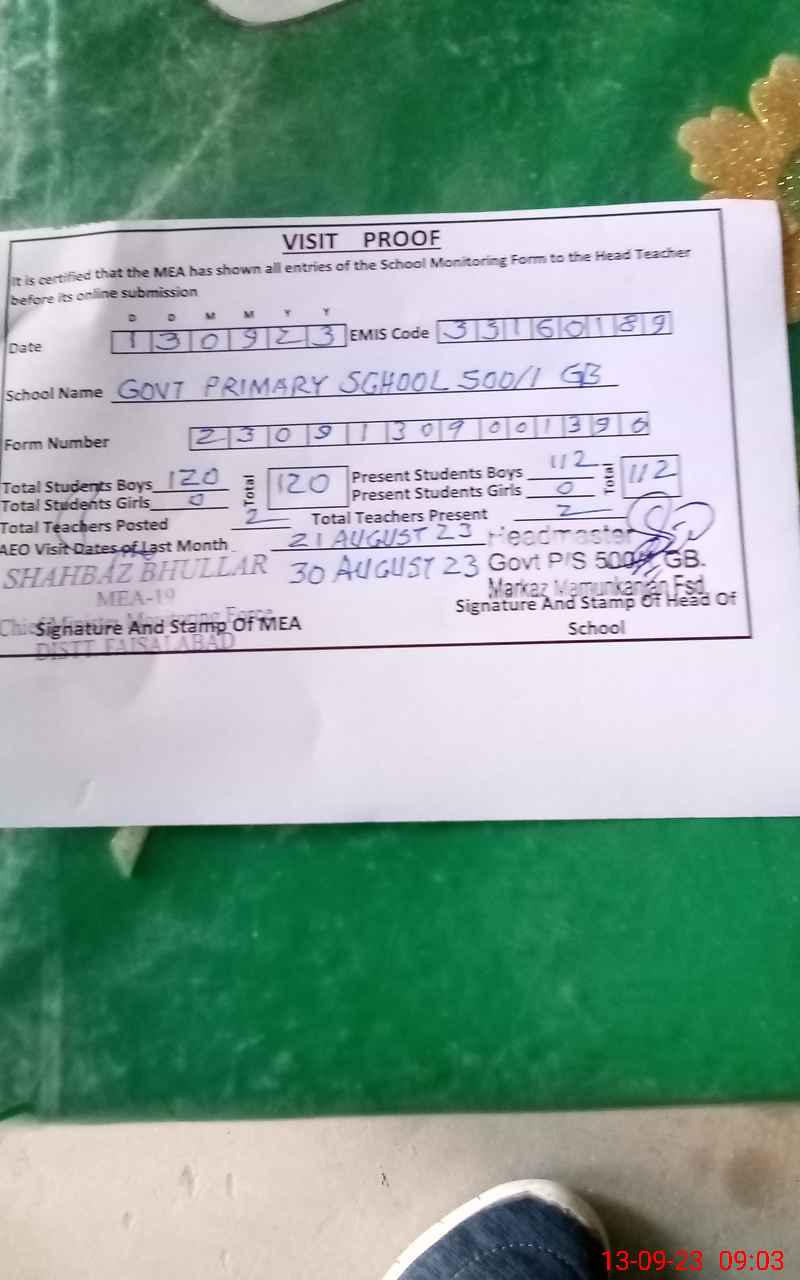 VISIT PROOF
It is certified that the MEA has shown all entries of the School Monitoring Form to the Head Teacher
before its online submission
D D M M Y Y
Date 1 3 0 9 2 3 EMIS Code 3 3 1 6 0 1 8 9
School Name GOVT PRIMARY SCHOOL 500/1 GB
Form Number 2 3 0 9 1 3 0 9 0 0 1 3 9 6
Total Students Boys 120 Total 120 Present Students Boys 112 Total 112
Total Students Girls 0 Present Students Girls 0
Total Teachers Posted 2 Total Teachers Present 2
AEO Visit Dates of Last Month 21 AUGUST 23 Headmaster
SHAHBAZ BHULLAR 30 AUGUST 23 Govt P/S 500/ GB.
MEA-19 Markaz Mamunkanjan Fsd
Chief Minister Monitoring Force Signature And Stamp Of Head Of
Signature And Stamp Of MEA School
DISTT. FAISALABAD
13-09-23 09:03